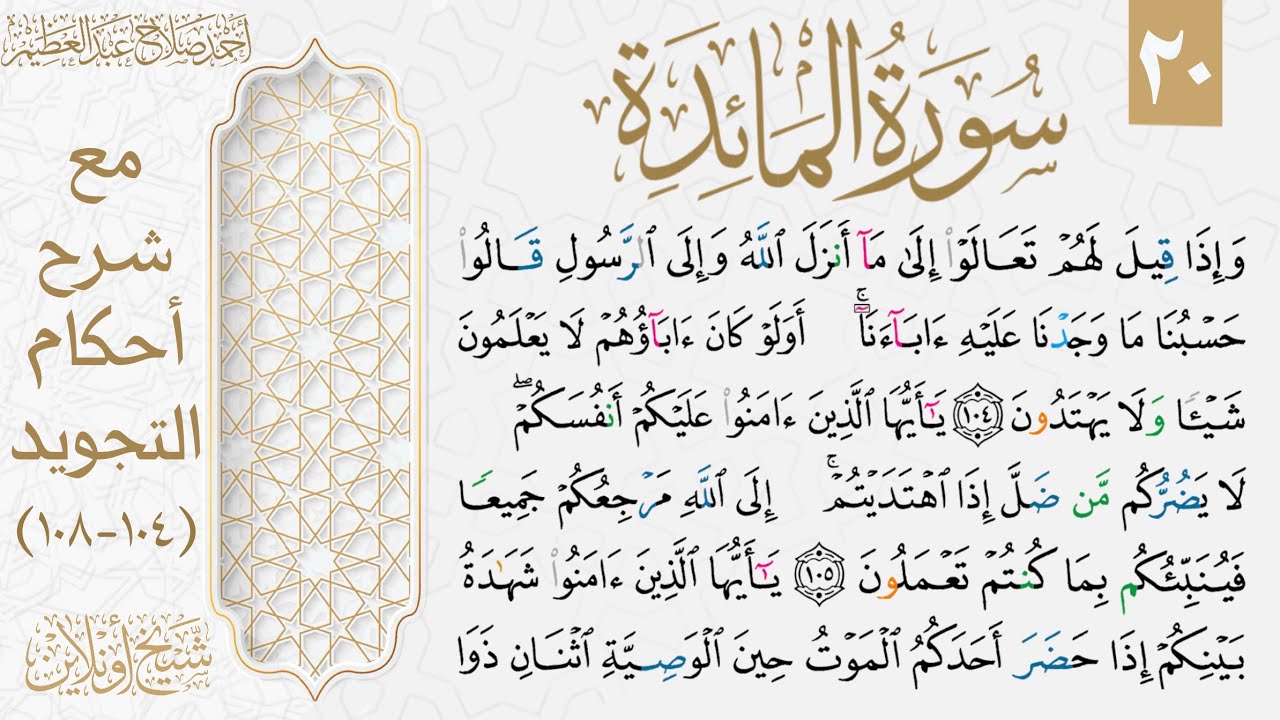 ٢٠
سُورَةُ الْمَائِدَةِ
وَإِذَا قِيلَ لَهُمۡ تَعَالَوۡاْ إِلَىٰ مَآ أَنزَلَ ٱللَّهُ وَإِلَى ٱلرَّسُولِ قَالُواْ
حَسۡبُنَا مَا وَجَدۡنَا عَلَيۡهِ ءَابَآءَنَآۚ أَوَلَوۡ كَانَ ءَابَآؤُهُمۡ لَا يَعۡلَمُونَ
شَيۡـٔٗا وَلَا يَهۡتَدُونَ ١٠٤ يَـٰٓأَيُّهَا ٱلَّذِينَ ءَامَنُواْ عَلَيۡكُمۡ أَنفُسَكُمۡۖ
لَا يَضُرُّكُم مَّن ضَلَّ إِذَا ٱهۡتَدَيۡتُمۡۚ إِلَى ٱللَّهِ مَرۡجِعُكُمۡ جَمِيعٗا
فَيُنَبِّئُكُم بِمَا كُنتُمۡ تَعۡمَلُونَ ١٠٥ يَـٰٓأَيُّهَا ٱلَّذِينَ ءَامَنُواْ شَهَٰدَةُ
بَيۡنِكُمۡ إِذَا حَضَرَ أَحَدَكُمُ ٱلۡمَوۡتُ حِينَ ٱلۡوَصِيَّةِ ٱثۡنَانِ ذَوَا
أحمد صلاح عبد العظيم
مع
شرح
أحكام
التجويد
(١٠٤-١٠٨)
شيخ أونلاين